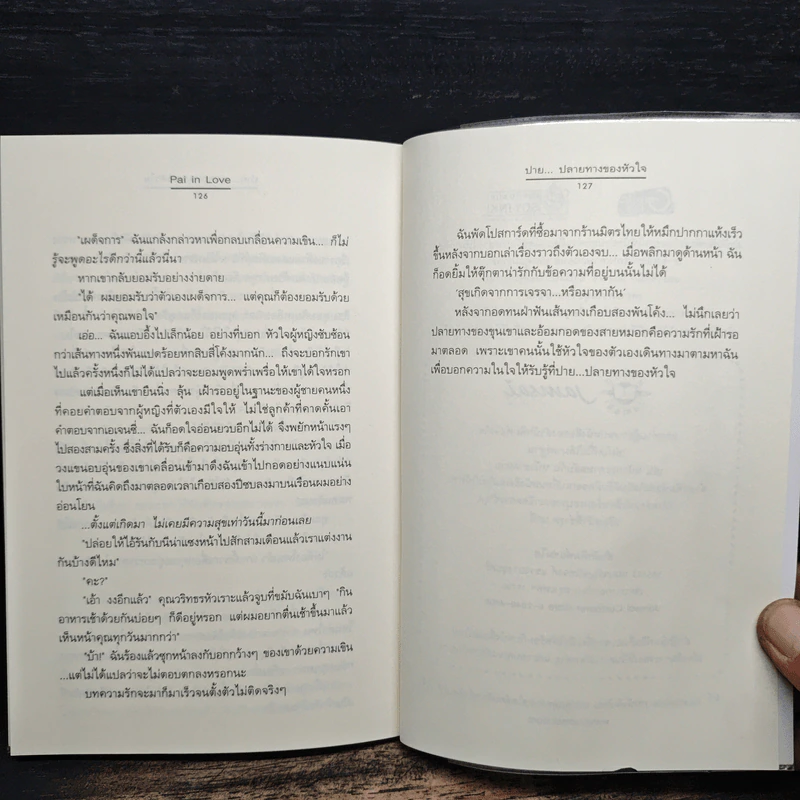 Pai in Love
126
"เผด็จการ" ฉันแกล้งกล่าวหาเพื่อกลบเกลื่อนความเขิน... ก็ไม่
รู้จะพูดอะไรดีกว่านี้แล้วนี่นา
หากเขากลับยอมรับอย่างง่ายดาย
"ได้ ผมยอมรับว่าตัวเองเผด็จการ... แต่คุณก็ต้องยอมรับด้วย
เหมือนกันว่าคุณพอใจ"
เฮ่อ... ฉันแอบอึ้งไปเล็กน้อย อย่างที่บอก หัวใจผู้หญิงซับซ้อน
กว่าเส้นทางหนึ่งพันแปดร้อยหกสิบสี่โค้งมากนัก... ถึงจะบอกรักเขา
ไปแล้วครั้งหนึ่งก็ไม่ได้แปลว่าจะยอมพูดพร่ำเพรื่อให้เขาได้ใจหรอก
แต่เมื่อเห็นเขายืนนิ่ง ลุ้น เฝ้ารออยู่ในฐานะของผู้ชายคนหนึ่ง
ที่คอยคำตอบจากผู้หญิงที่ตัวเองมีใจให้ ไม่ใช่ลูกค้าที่คาดคั้นเอา
คำตอบจากเอเจนซี่... ฉันก็อดใจอ่อนยวบอีกไม่ได้ จึงพยักหน้าแรงๆ
ไปสองสามครั้ง ซึ่งสิ่งที่ได้รับก็คือความอบอุ่นทั้งร่างกายและหัวใจ เมื่อ
วงแขนอบอุ่นของเขาเคลื่อนเข้ามาดึงฉันเข้าไปกอดอย่างแนบแน่น
ใบหน้าที่ฉันคิดถึงมาตลอดเวลาเกือบสองปีซบลงมาบนเรือนผมอย่าง
อ่อนโยน
...ตั้งแต่เกิดมา ไม่เคยมีความสุขเท่าวันนี้มาก่อนเลย
"ปล่อยให้ไอ้รันกับนีน่าแซงหน้าไปสักสามเดือนแล้วเราแต่งงาน
กันบ้างดีไหม"
"คะ?"
"เอ้า งงอีกแล้ว" คุณวริทธรหัวเราะแล้วจูบที่ขมับฉันเบาๆ "กิน
อาหารเช้าด้วยกันบ่อยๆ ก็ดีอยู่หรอก แต่ผมอยากตื่นเช้าขึ้นมาแล้ว
เห็นหน้าคุณทุกวันมากกว่า"
"บ้า!" ฉันร้องแล้วซุกหน้าลงกับอกกว้างๆ ของเขาด้วยความเขิน
...แต่ไม่ได้แปลว่าจะไม่ตอบตกลงหรอกนะ
บทความรักจะมาก็มาเร็วจนตั้งตัวไม่ติดจริงๆ
ปาย... ปลายทางของหัวใจ
127
ฉันพัดโปสการ์ดที่ซื้อมาจากร้านมิตรไทยให้หมึกปากกาแห้งเร็ว
ขึ้นหลังจากบอกเล่าเรื่องราวถึงตัวเองจบ... เมื่อพลิกมาดูด้านหน้า ฉัน
ก็อดยิ้มให้ตุ๊กตาน่ารักกับข้อความที่อยู่บนนั้นไม่ได้
'สุขเกิดจากการเจรจา...หรือมาหากัน'
หลังจากอดทนฝ่าฟันเส้นทางเกือบสองพันโค้ง... ไม่นึกเลยว่า
ปลายทางของขุนเขาและอ้อมกอดของสายหมอกคือความรักที่เฝ้ารอ
มาตลอด เพราะเขาคนนั้นใช้หัวใจของตัวเองเดินทางมาตามหาฉัน
เพื่อบอกความในใจให้รับรู้ที่ปาย...ปลายทางของหัวใจ